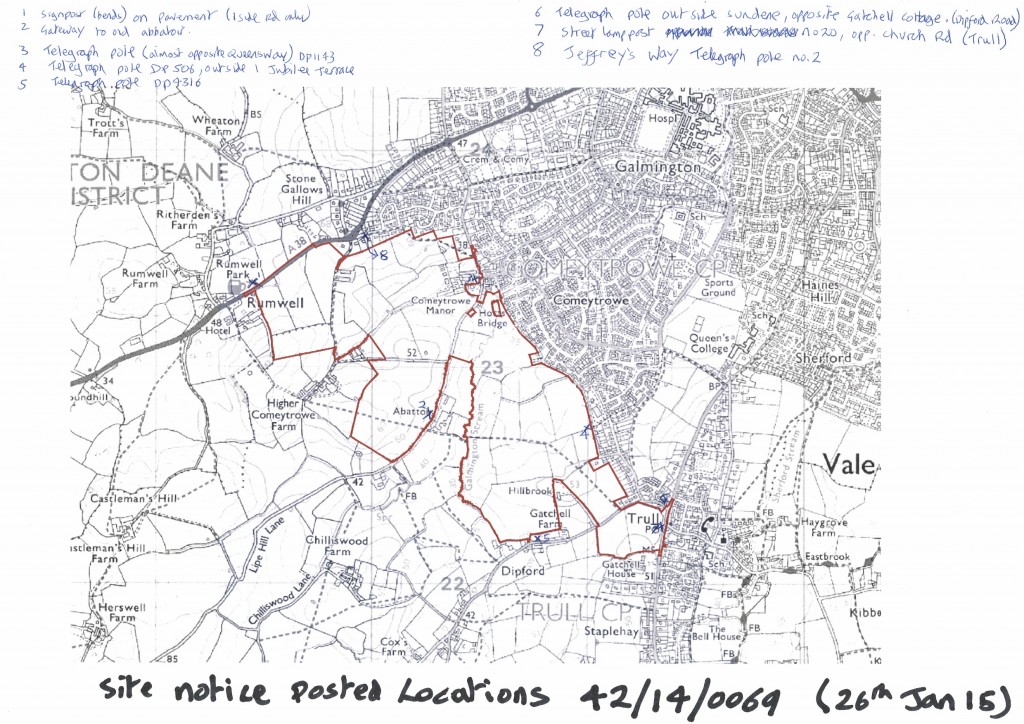 1 Signpost (bends) on pavement (1 side Rd only)
2 Gateway to old abbatoir.
3 Telegraph pole (almost opposite Queensway) DP1143
4 Telegraph pole DP 506, outside 1 Jubilee Terrace
5 Telegraph pole DP4316
6 Telegraph pole outside Sundene, opposite Gatchell Cottage. (Dipford Road)
7 Street lamppost no 20, opp. Church Rd (Trull)
8 Jeffrey's Way Telegraph pole no. 2
Trott's
Farm
Wheaton
Farm
85
47
24
Crem & Cemy
Hospl
Galmington
Sch
TON DEANE
ISTRICT
Stone
Gallows
Hill
Ritherden's
Farm
A 38
Sch
8
28
COMEYTROVE CP
Rumwell
Park
Rumwell
Farm
Rumwell
Comeytrowe
Manor
Comeytrowe
Sports
Ground
Haines
Hill
Bridge
48
Hotel
Sch
Queen's
College
Sherford
52
23
34
oundhill
BP
Higher
Comeytrowe
Farm
2
Abattoir
4
Galmington Stream
Sherford Stream
Vale
42
FB
Castleman's Hill
Hillbrook
53
Gatchell
Farm
Trull
FB
Haygrove
Farm
astleman's Hill
Farm
Lipe Hill Lane
Chilliswood
Farm
5
Dipford
MS
Gatchell
House
51
Sch
Eastbrook
Chilliswood Lane
22
FB
Herswell
Farm
42
TRULL CP
Kibbe
Staplehay
The
Bell House
FB
FB
85
Cox's
Farm
Site notice posted Locations 42/14/0069 (26th Jan 15)